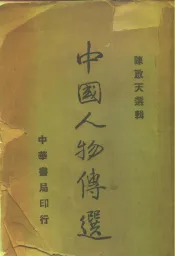 陳啟天選輯
中國人物傳選
中華書局印行